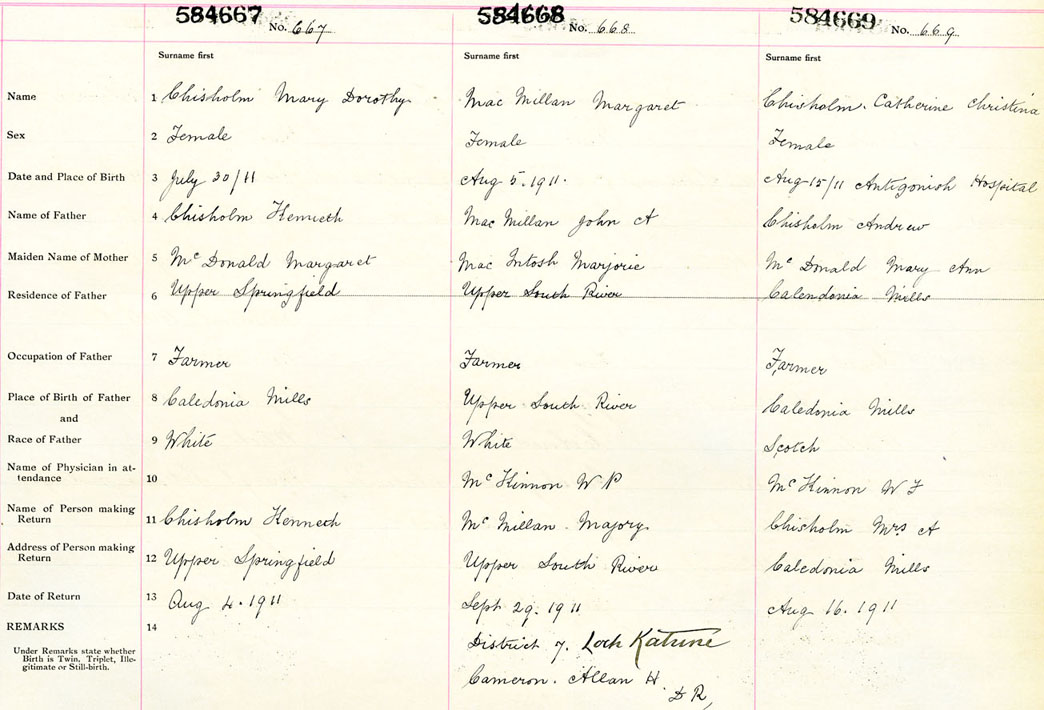 584667 No. 667 584668 No. 668 584669 No. 669
Surname first Surname first Surname first
Name 1 Chisholm Mary Dorothy Mac Millan Margaret Chisholm. Catherine Christina
Sex 2 Female Female Female
Date and Place of Birth 3 July 30/11 Aug 5. 1911. Aug 15/11 Antigonish Hospital
Name of Father 4 Chisholm Kenneth Mac Millan John A Chisholm Andrew
Maiden Name of Mother 5 Mc Donald Margaret Mac Intosh Marjorie Mc Donald Mary Ann
Residence of Father 6 Upper Springfield Upper South River Calendonia Mills
Occupation of Father 7 Farmer Farmer Farmer
Place of Birth of Father 8 Caledonia Mills Upper South River Caledonia Mills
and
Race of Father 9 White White Scotch
Name of Physician in at-
tendance 10 Mc Kinnon W P Mc Kinnon W F
Name of Person making
Return 11 Chisholm Kenneth Mc Millan Majory Chisholm Mrs A
Address of Person making
Return 12 Upper Springfield Upper South River Caledonia Mills
Date of Return 13 Aug 4. 1911 Sept 29. 1911 Aug 16. 1911
REMARKS 14
Under Remarks state whether
Birth is Twin, Triplet, Ille-
gitimate or Still-birth.
District 7. Loch Katrine
Cameron. Allan H.
D R,